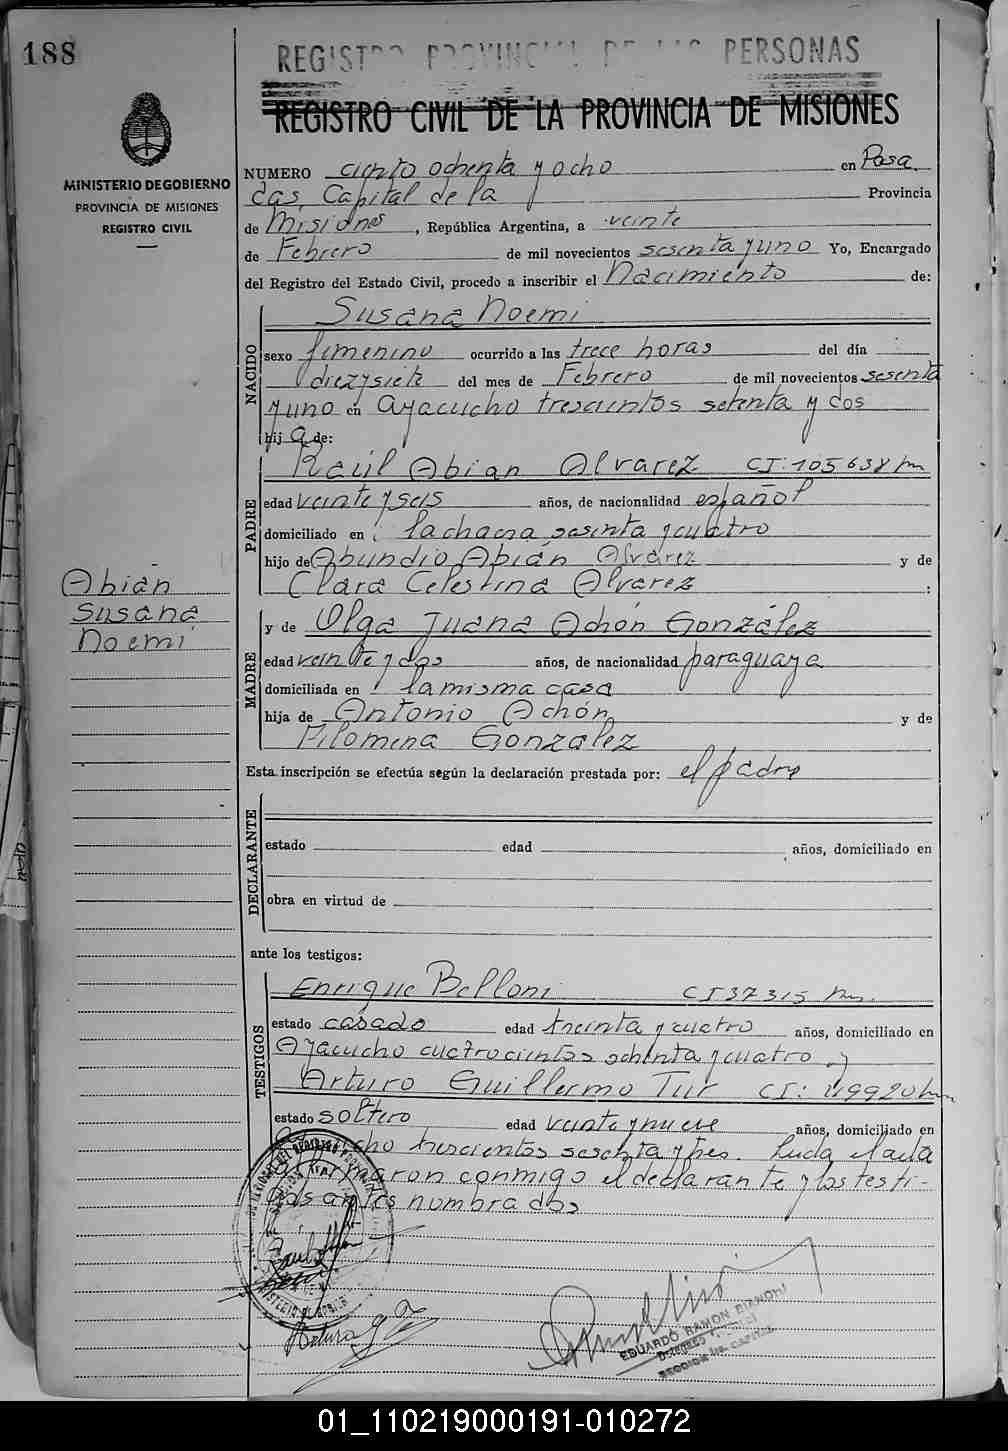 188
REGISTRO PROVINCIAL DE LAS PERSONAS
REGISTRO CIVIL DE LA PROVINCIA DE MISIONES
MINISTERIO DE GOBIERNO
PROVINCIA DE MISIONES
REGISTRO CIVIL
NUMERO ciento ochenta y ocho en Posa
das, Capital de la Provincia
de Misiones, República Argentina, a veinte
de Febrero de mil novecientos sesenta y uno Yo, Encargado
del Registro del Estado Civil, procedo a inscribir el Nacimiento de:
NACIDO
Susana Noemi
sexo femenino ocurrido a las trece horas del día
diez y siete del mes de Febrero de mil novecientos sesenta
y uno en Ayacucho trescientos setenta y dos
hij a de:
PADRE
Raúl Abian Alvarez CI: 105638 
edad veinte y seis años, de nacionalidad español
domiciliado en la chacra sesenta y cuatro
hijo de Abundio Abián Alvarez y de
Clara Celestina Alvarez :
Abián
Susana
Noemi
MADRE
y de Olga Juana Achón González
edad veinte y dos años, de nacionalidad paraguaya
domiciliada en la misma casa
hija de Antonio Achón y de
Filomena Gonzalez
Esta inscripción se efectúa según la declaración prestada por: el padre
DECLARANTE
estado edad años, domiciliado en
obra en virtud de
ante los testigos:
TESTIGOS
Enrique Belloni CI 37315
estado casado edad treinta y cuatro años, domiciliado en
Ayacucho cuatrocientos ochenta y cuatro y
Arturo Guillermo Tur CI: 49920
estado soltero edad veinte y nueve años, domiciliado en
trescientos sesenta y tres. Leída el acta
conmigo el declarante y los testi-
gos antes nombrados
EDUARDO RAMON BIANCHI
01_110219000191-010272